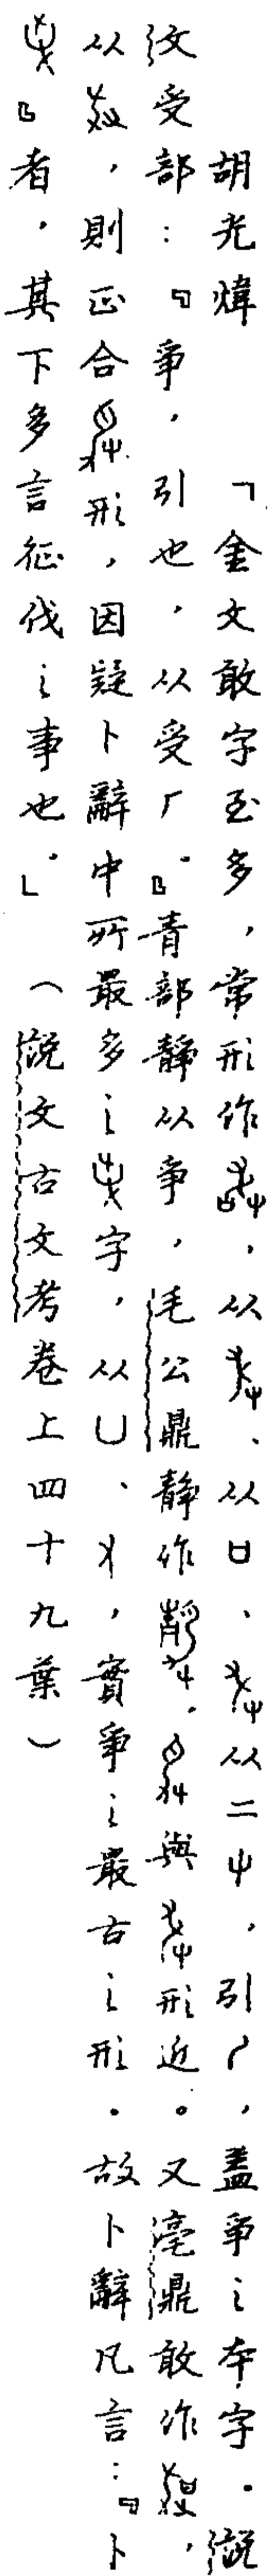 胡光煒 「金文敢字至多，常形作，从、从口、从二，引，蓋爭之本字。說
文受部：『爭，引也，从受厂。』青部靜从爭，毛公鼎靜作，與形近。又亳鼎敢作，
从，則正合形，因疑卜辭中所最多之字，从凵、，實爭之最古之形。故卜辭凡言：『卜
』者，其下多言征伐之事也。」（說文古文考卷上四十九葉）